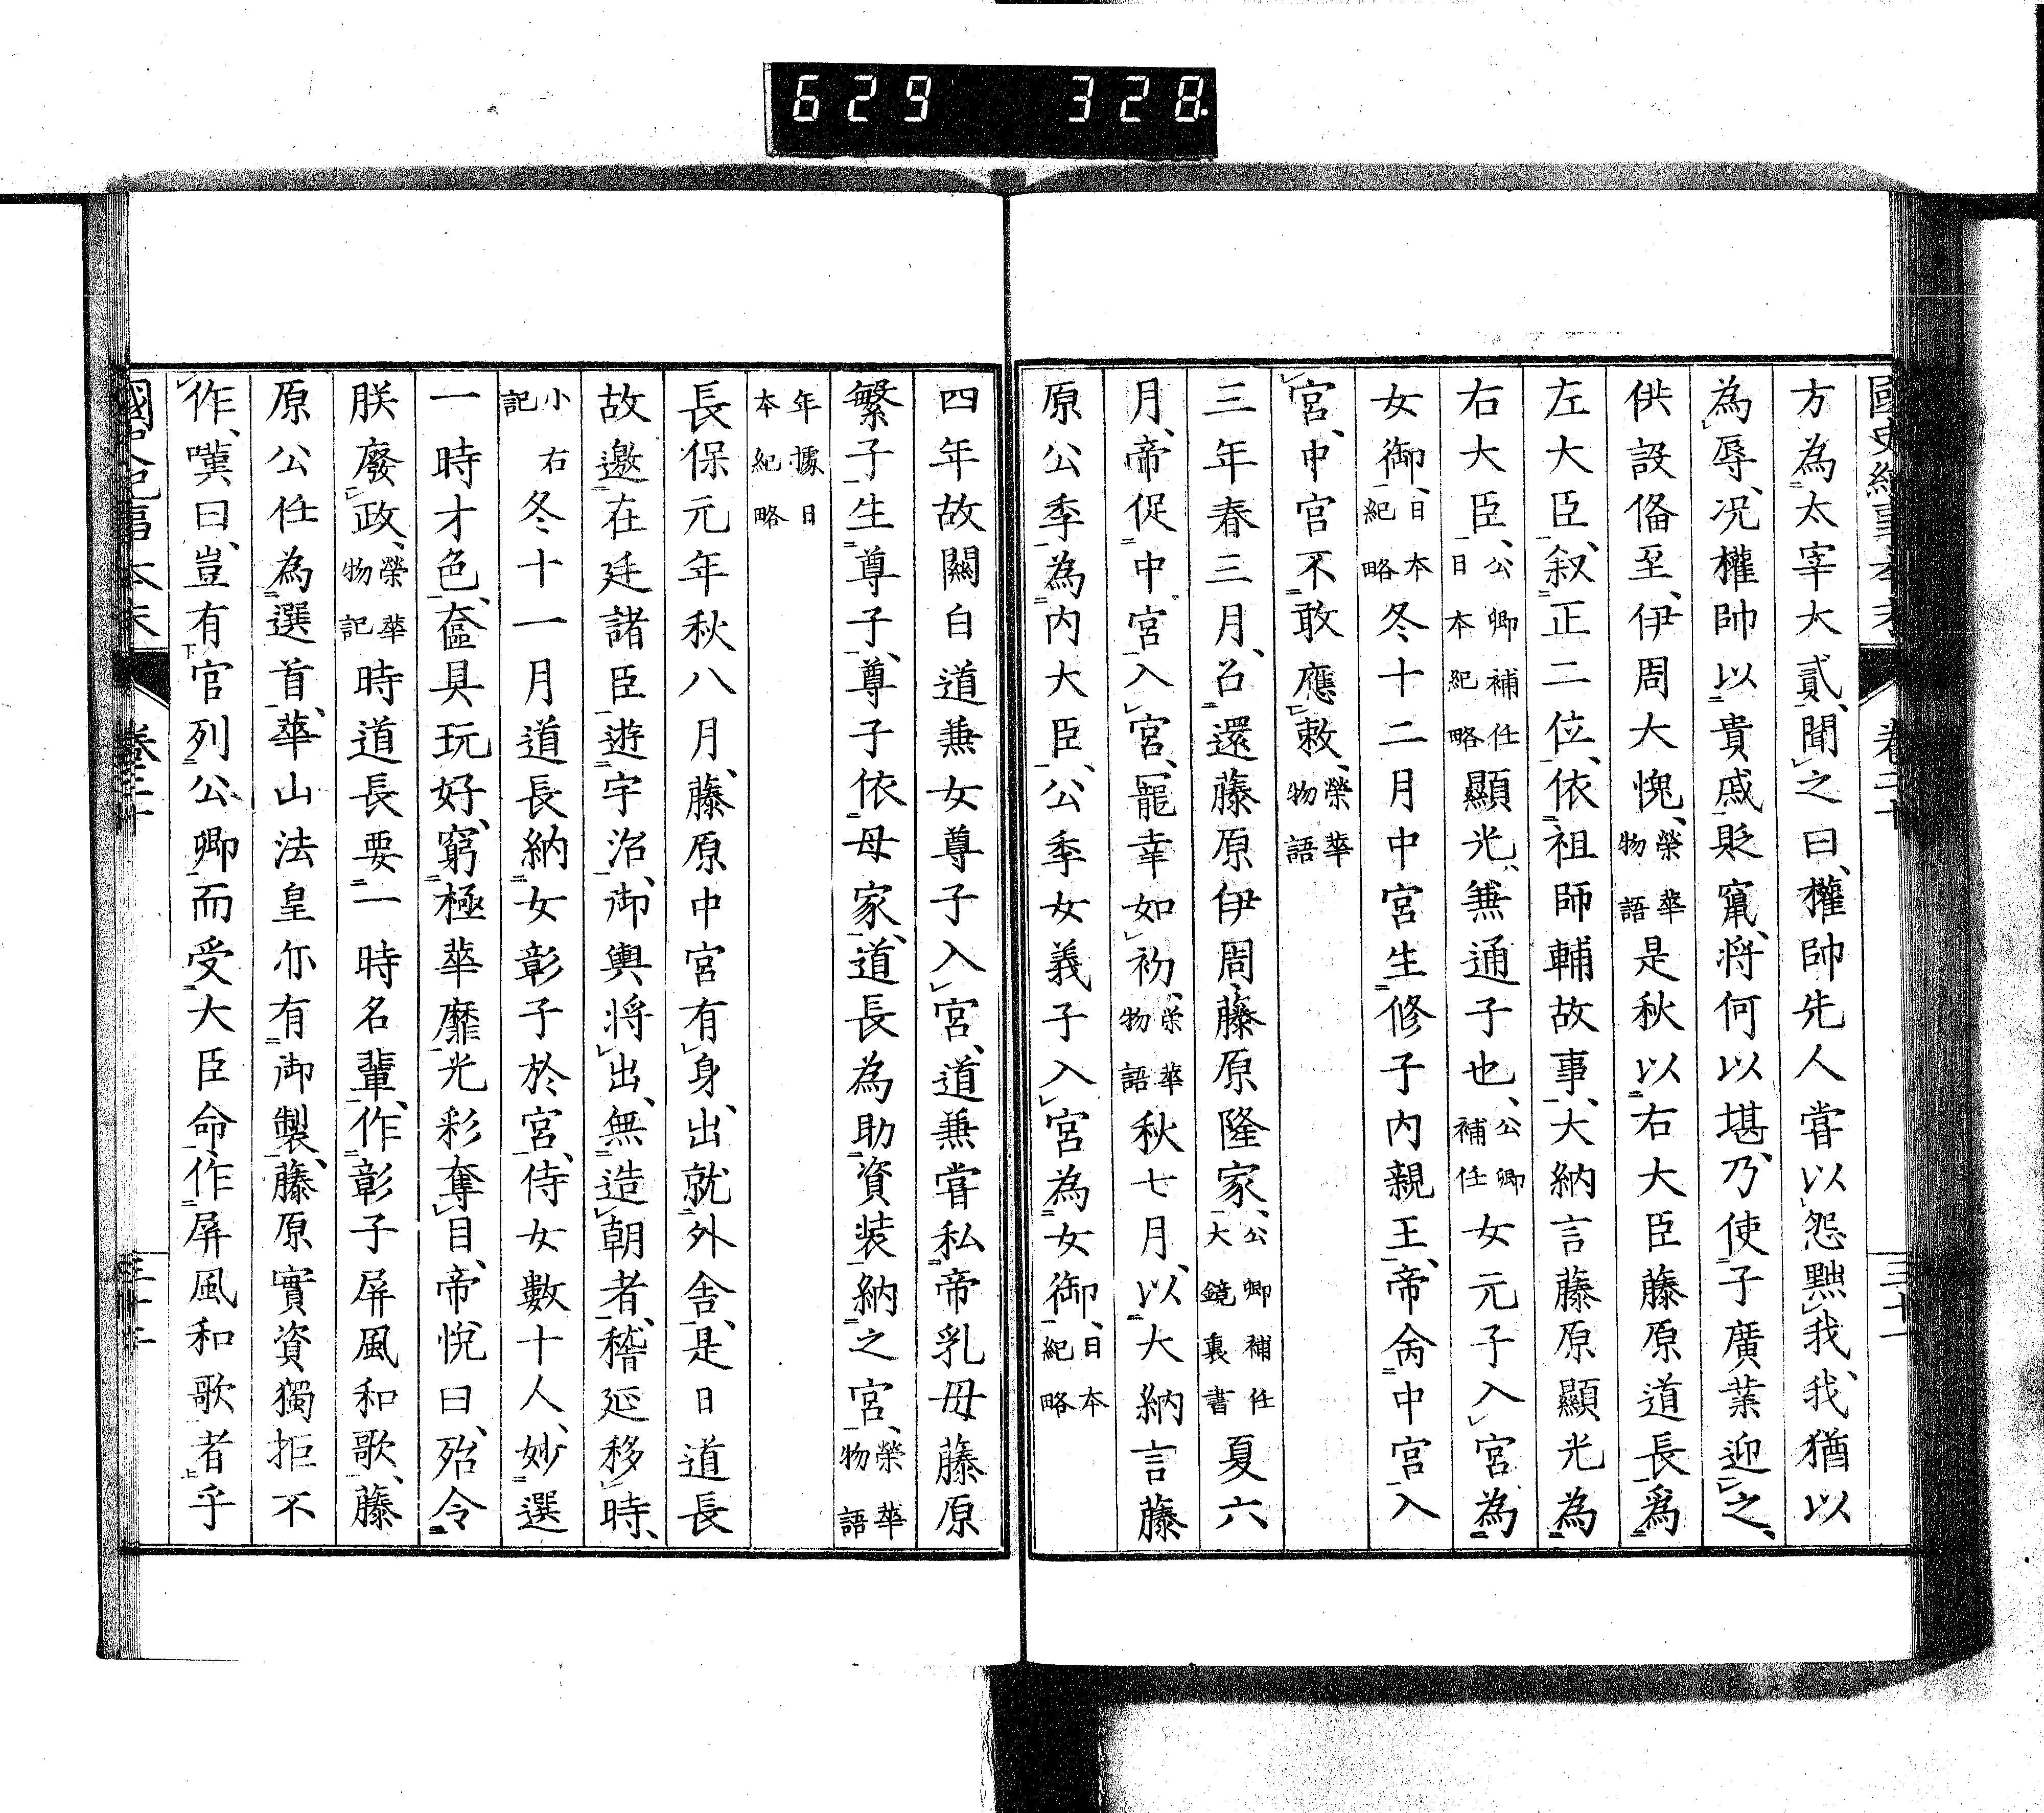 629 328
方為太宰大貳、聞之曰、權帥先人嘗以怨黜我、我猶以
為辱、況權帥以貴戚貶竄、將何以堪、乃使子廣業迎之、
供設俻至、伊周大愧、榮華物語是秋以右大臣藤原道長爲
左大臣、叙正二位、依祖師輔故事、大納言藤原顯光為
右大臣、公卿補任日本紀略顯光、兼通子也、公卿補任女元子入宮為
女御、日本紀略冬十二月中宮生修子内親王、帝命中宮入
宮、中宮不敢應敕、榮華物語
三年春三月、召還藤原伊周、藤原隆家、公卿補任大鏡裏書夏六
月、帝促中宮入宮、寵幸如初、榮華物語秋七月、以大納言藤
原公季為内大臣、公季女義子入宮為女御、日本紀略
四年故關白道兼女尊子入宮、道兼嘗私帝乳母藤原
繁子生尊子、尊子依母家、道長為助資装納之宮、榮華物語
年據日本紀略
長保元年秋八月、藤原中宮有身、出就外舎、是日道長
故邀在廷諸臣遊宇治、御輿將出、無造朝者、稽延移時、
小右記冬十一月道長納女彰子於宮、侍女數十人、妙選
一時才色、奩具玩好、窮極華靡、光彩奪目、帝悅曰、殆令
朕廢政、榮華物記時道長要一時名輩、作彰子屏風和歌、藤
原公任為選首、華山法皇亦有御製、藤原實資獨拒不
作、嘆曰、豈有官列公卿而受大臣命作屏風和歌者乎